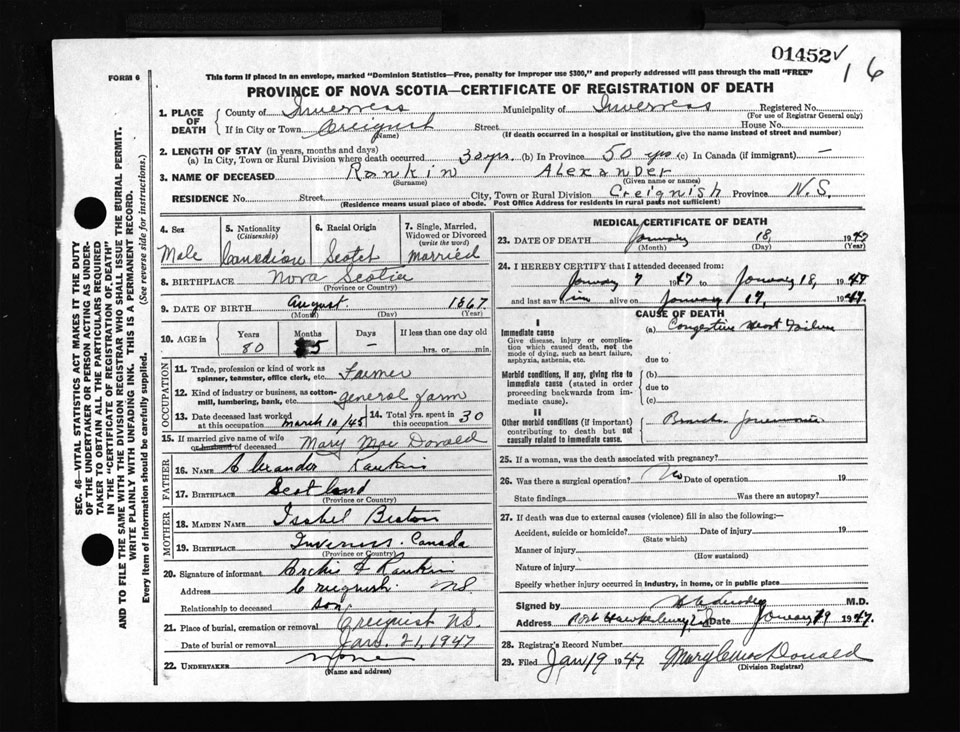 01452 √
16
FORM 6
This form if placed in an envelope, marked "Dominion Statistics—Free, penalty for improper use $300," and properly addressed will pass through the mail "FREE"
PROVINCE OF NOVA SCOTIA—CERTIFICATE OF REGISTRATION OF DEATH
1. PLACE OF DEATH
County of Inverness Municipality of Inverness Registered No.
(For use of Registrar General only)
If in City or Town Street House No.
(Name) (If death occurred in a hospital or institution, give the name instead of street and number)
2. LENGTH OF STAY (in years, months and days)
(a) In City, Town or Rural Division where death occurred 30 yrs. (b) In Province 50 yrs (c) In Canada (if immigrant) —
3. NAME OF DECEASED Rankin Alexander
(Surname) (Given name or names)
RESIDENCE No. Street City, Town or Rural Division Creignish Province N.S.
(Residence means usual place of abode. Post Office Address for residents in rural parts not sufficient)
4. Sex 5. Nationality (Citizenship) 6. Racial Origin 7. Single, Married, Widowed or Divorced (write the word)
Male Canadian Scotch married
8. BIRTHPLACE Nova Scotia
(Province or Country)
9. DATE OF BIRTH August 1867
(Month) (Day) (Year)
10. AGE in Years Months Days If less than one day old
80 5 — hrs. or min.
OCCUPATION
11. Trade, profession or kind of work as spinner, teamster, office clerk, etc. Farmer
12. Kind of industry or business, as cotton-mill, lumbering, bank, etc. general farm
13. Date deceased last worked at this occupation march 10/45 14. Total yrs. spent in this occupation 30
15. If married give name of wife or husband of deceased Mary Mac Donald
FATHER
16. NAME Alexander Rankin
17. BIRTHPLACE Scotland
(Province or Country)
MOTHER
18. MAIDEN NAME Isabel Beaton
19. BIRTHPLACE Inverness. Canada
(Province or Country)
20. Signature of informant Archie Rankin
Address Creignish NS.
Relationship to deceased son
21. Place of burial, cremation or removal NS.
Date of burial or removal Jan. 21, 1947
22. UNDERTAKER none
(Name and address)
MEDICAL CERTIFICATE OF DEATH
23. DATE OF DEATH January 18, 1947
(Month) (Day) (Year)
24. I HEREBY CERTIFY that I attended deceased from:
January 7 1947 to January 18, 1947
and last saw him alive on January 17, 1947.
CAUSE OF DEATH
I
Immediate cause (a) Congestive Heart Failure
Give disease, injury or complication which caused death, not the mode of dying, such as heart failure, asphyxia, asthenia, etc.
due to
Morbid conditions, if any, giving rise to immediate cause (stated in order proceeding backwards from immediate cause).
(b)
due to
(c)
II
Other morbid conditions (if important) contributing to death but not causally related to immediate cause. Broncho Pneumonia
25. If a woman, was the death associated with pregnancy?
26. Was there a surgical operation? No Date of operation 19
State findings Was there an autopsy?
27. If death was due to external causes (violence) fill in also the following:—
Accident, suicide or homicide? Date of injury 19
(State which)
Manner of injury
(How sustained)
Nature of injury
Specify whether injury occurred in industry, in home, or in public place
Signed by M.D.
Address Port Hawkesbury Date January 19 1947.
28. Registrar's Record Number
29. Filed Jan 19 1947 Mary MacDonald
(Division Registrar)
SEC. 46—VITAL STATISTICS ACT MAKES IT THE DUTY
OF THE UNDERTAKER OR PERSON ACTING AS UNDER-
TAKER TO OBTAIN ALL THE PARTICULARS REQUIRED
IN THE "CERTIFICATE OF REGISTRATION OF DEATH"
AND TO FILE THE SAME WITH THE DIVISION REGISTRAR WHO SHALL ISSUE THE BURIAL PERMIT.
WRITE PLAINLY WITH UNFADING INK. THIS IS A PERMANENT RECORD.
Every item of information should be carefully supplied. (See reverse side for instructions.)